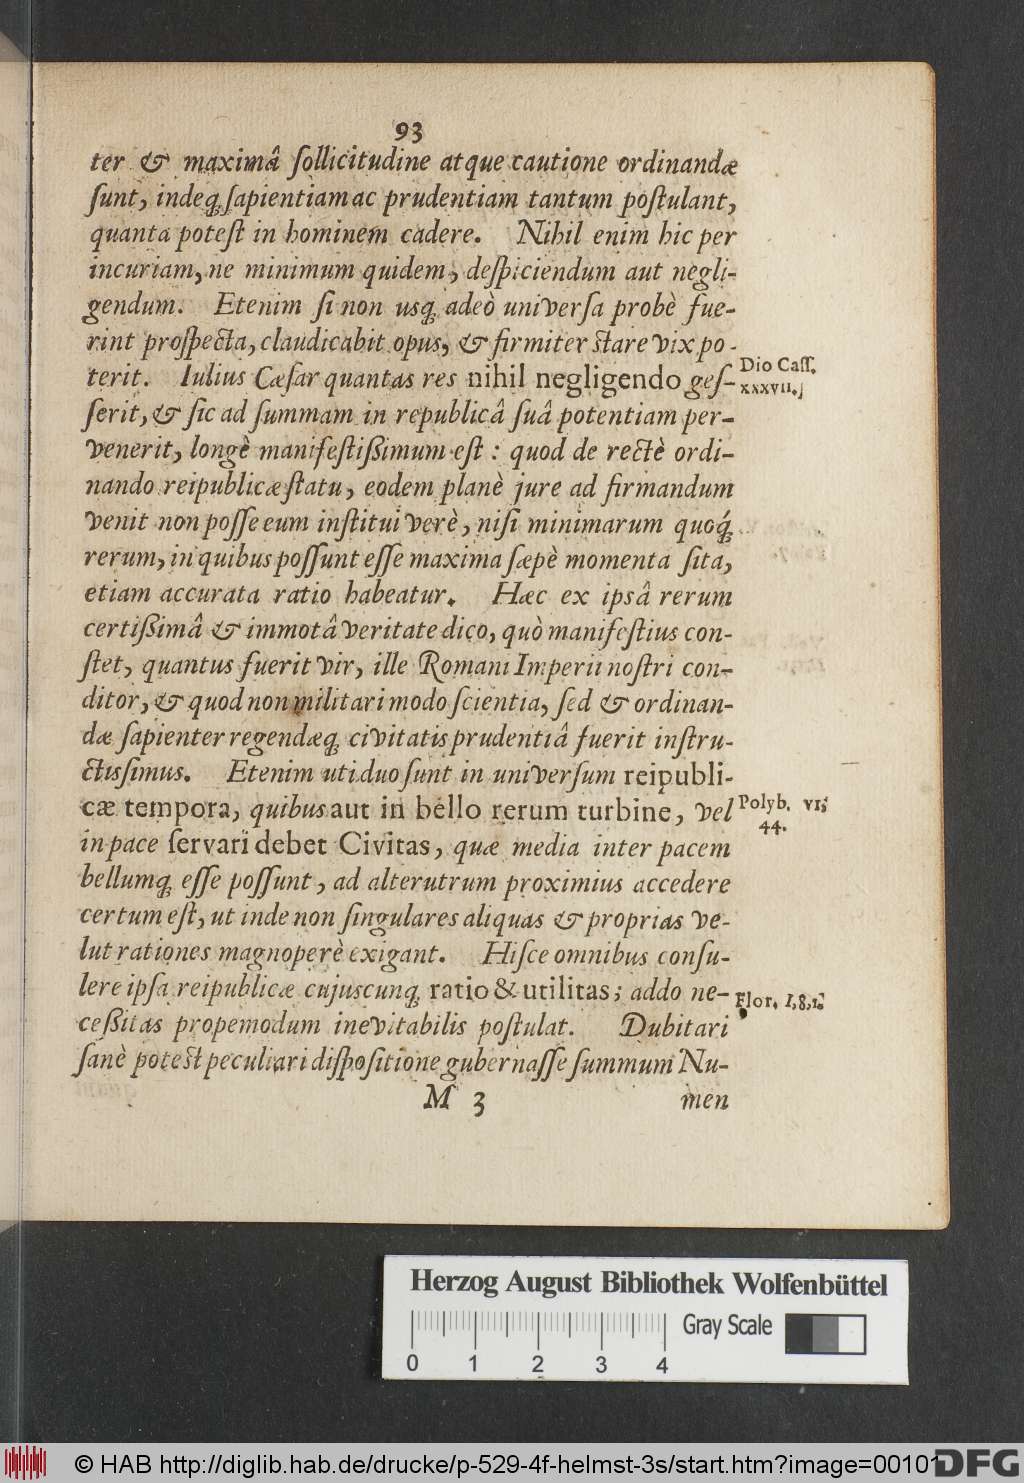 93
ter & maximâ ſollicitudine atque cautione ordinandæ
ſunt, indeq́ ſapientiam ac prudentiam tantum poſtulant,
quanta poteſt in hominem cadere. Nihil enim hic per
incuriam, ne minimum quidem, deſpiciendum aut negli-
gendum. Etenim ſi non usq́ adeò univerſa probè fue-
rint proſpecta, claudicabit opus, & firmiter ſtare vix po-
terit. Iulius Cæſar quantas res nihil negligendo geſ-
Dio Caſſ.
xxxvii.
ſerit, & ſic ad ſummam in republicâ ſuâ potentiam per-
venerit, longè manifeſtißimum eſt: quod de rectè ordi-
nando reipublicæ ſtatu, eodem planè jure ad firmandum
venit non poſſe eum inſtitui verè, niſi minimarum quoq́
rerum, in quibus poſſunt eſſe maxima ſæpè momenta ſita,
etiam accurata ratio habeatur. Hæc ex ipsâ rerum
certißimâ & immotâ veritate dico, quò manifeſtius con-
ſtet, quantus fuerit vir, ille Romani Imperii noſtri con-
ditor, & quod non militari modo ſcientia, ſed & ordinan-
dæ ſapienter regendæq́ civitatis prudentiâ fuerit inſtru-
ctisſimus. Etenim uti duo ſunt in univerſum reipubli-
cæ tempora, quibus aut in bello rerum turbine, vel
Polyb. VI,
44.
in pace ſervari debet Civitas, quæ media inter pacem
bellumq́ eſſe poſſunt, ad alterutrum proximius accedere
certum eſt, ut inde non ſingulares aliquas & proprias ve-
lut rationes magnoperè exigant. Hiſce omnibus conſu-
lere ipſa reipublicæ cujuscunq́ ratio & utilitas; addo ne-
Flor. I,8,1.
ceßitas propemodum inevitabilis poſtulat. Dubitari
ſanè poteſt peculiari diſpoſitione gubernaſſe ſummum Nu-
M 3 men
Herzog August Bibliothek Wolfenbüttel
Gray Scale
0 1 2 3 4
© HAB http://diglib.hab.de/drucke/p-529-4f-helmst-3s/start.htm?image=00101
DFG